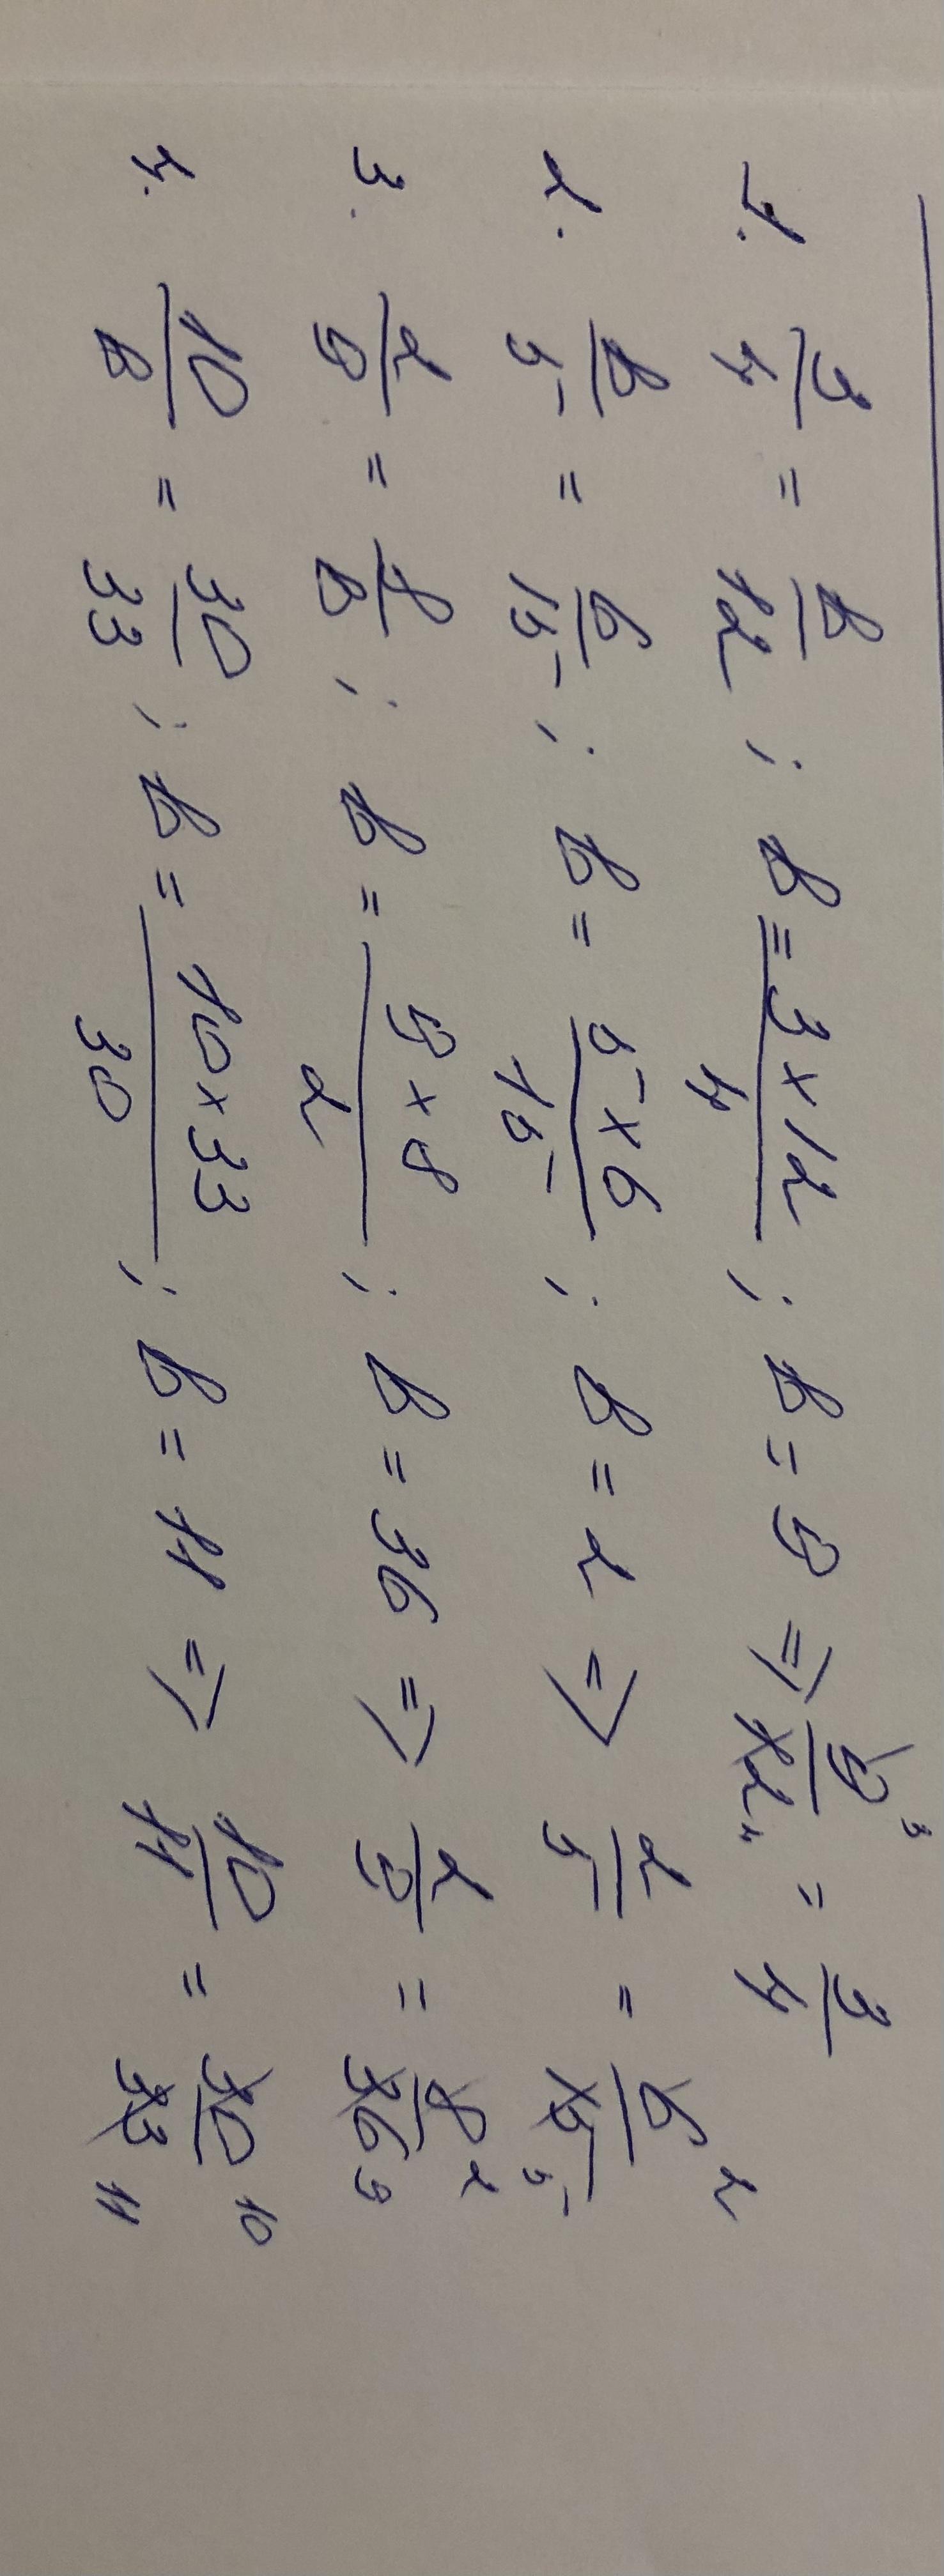 1. 3/4 = b/12 ; b = 3×12/4 ; b = 9 ⇒ 9/12 3 4 = 3/4
2. b/5 = 6/15 ; b = 5×6/15 ; b = 2 ⇒ 2/5 = 6/15 2 5
3. 2/9 = 8/b ; b = 9×8/2 ; b = 36 ⇒ 2/9 = 8/36 2 9
4. 10/b = 30/33 ; b = 10×33/30 ; b = 11 ⇒ 10/11 = 30/33 10 11